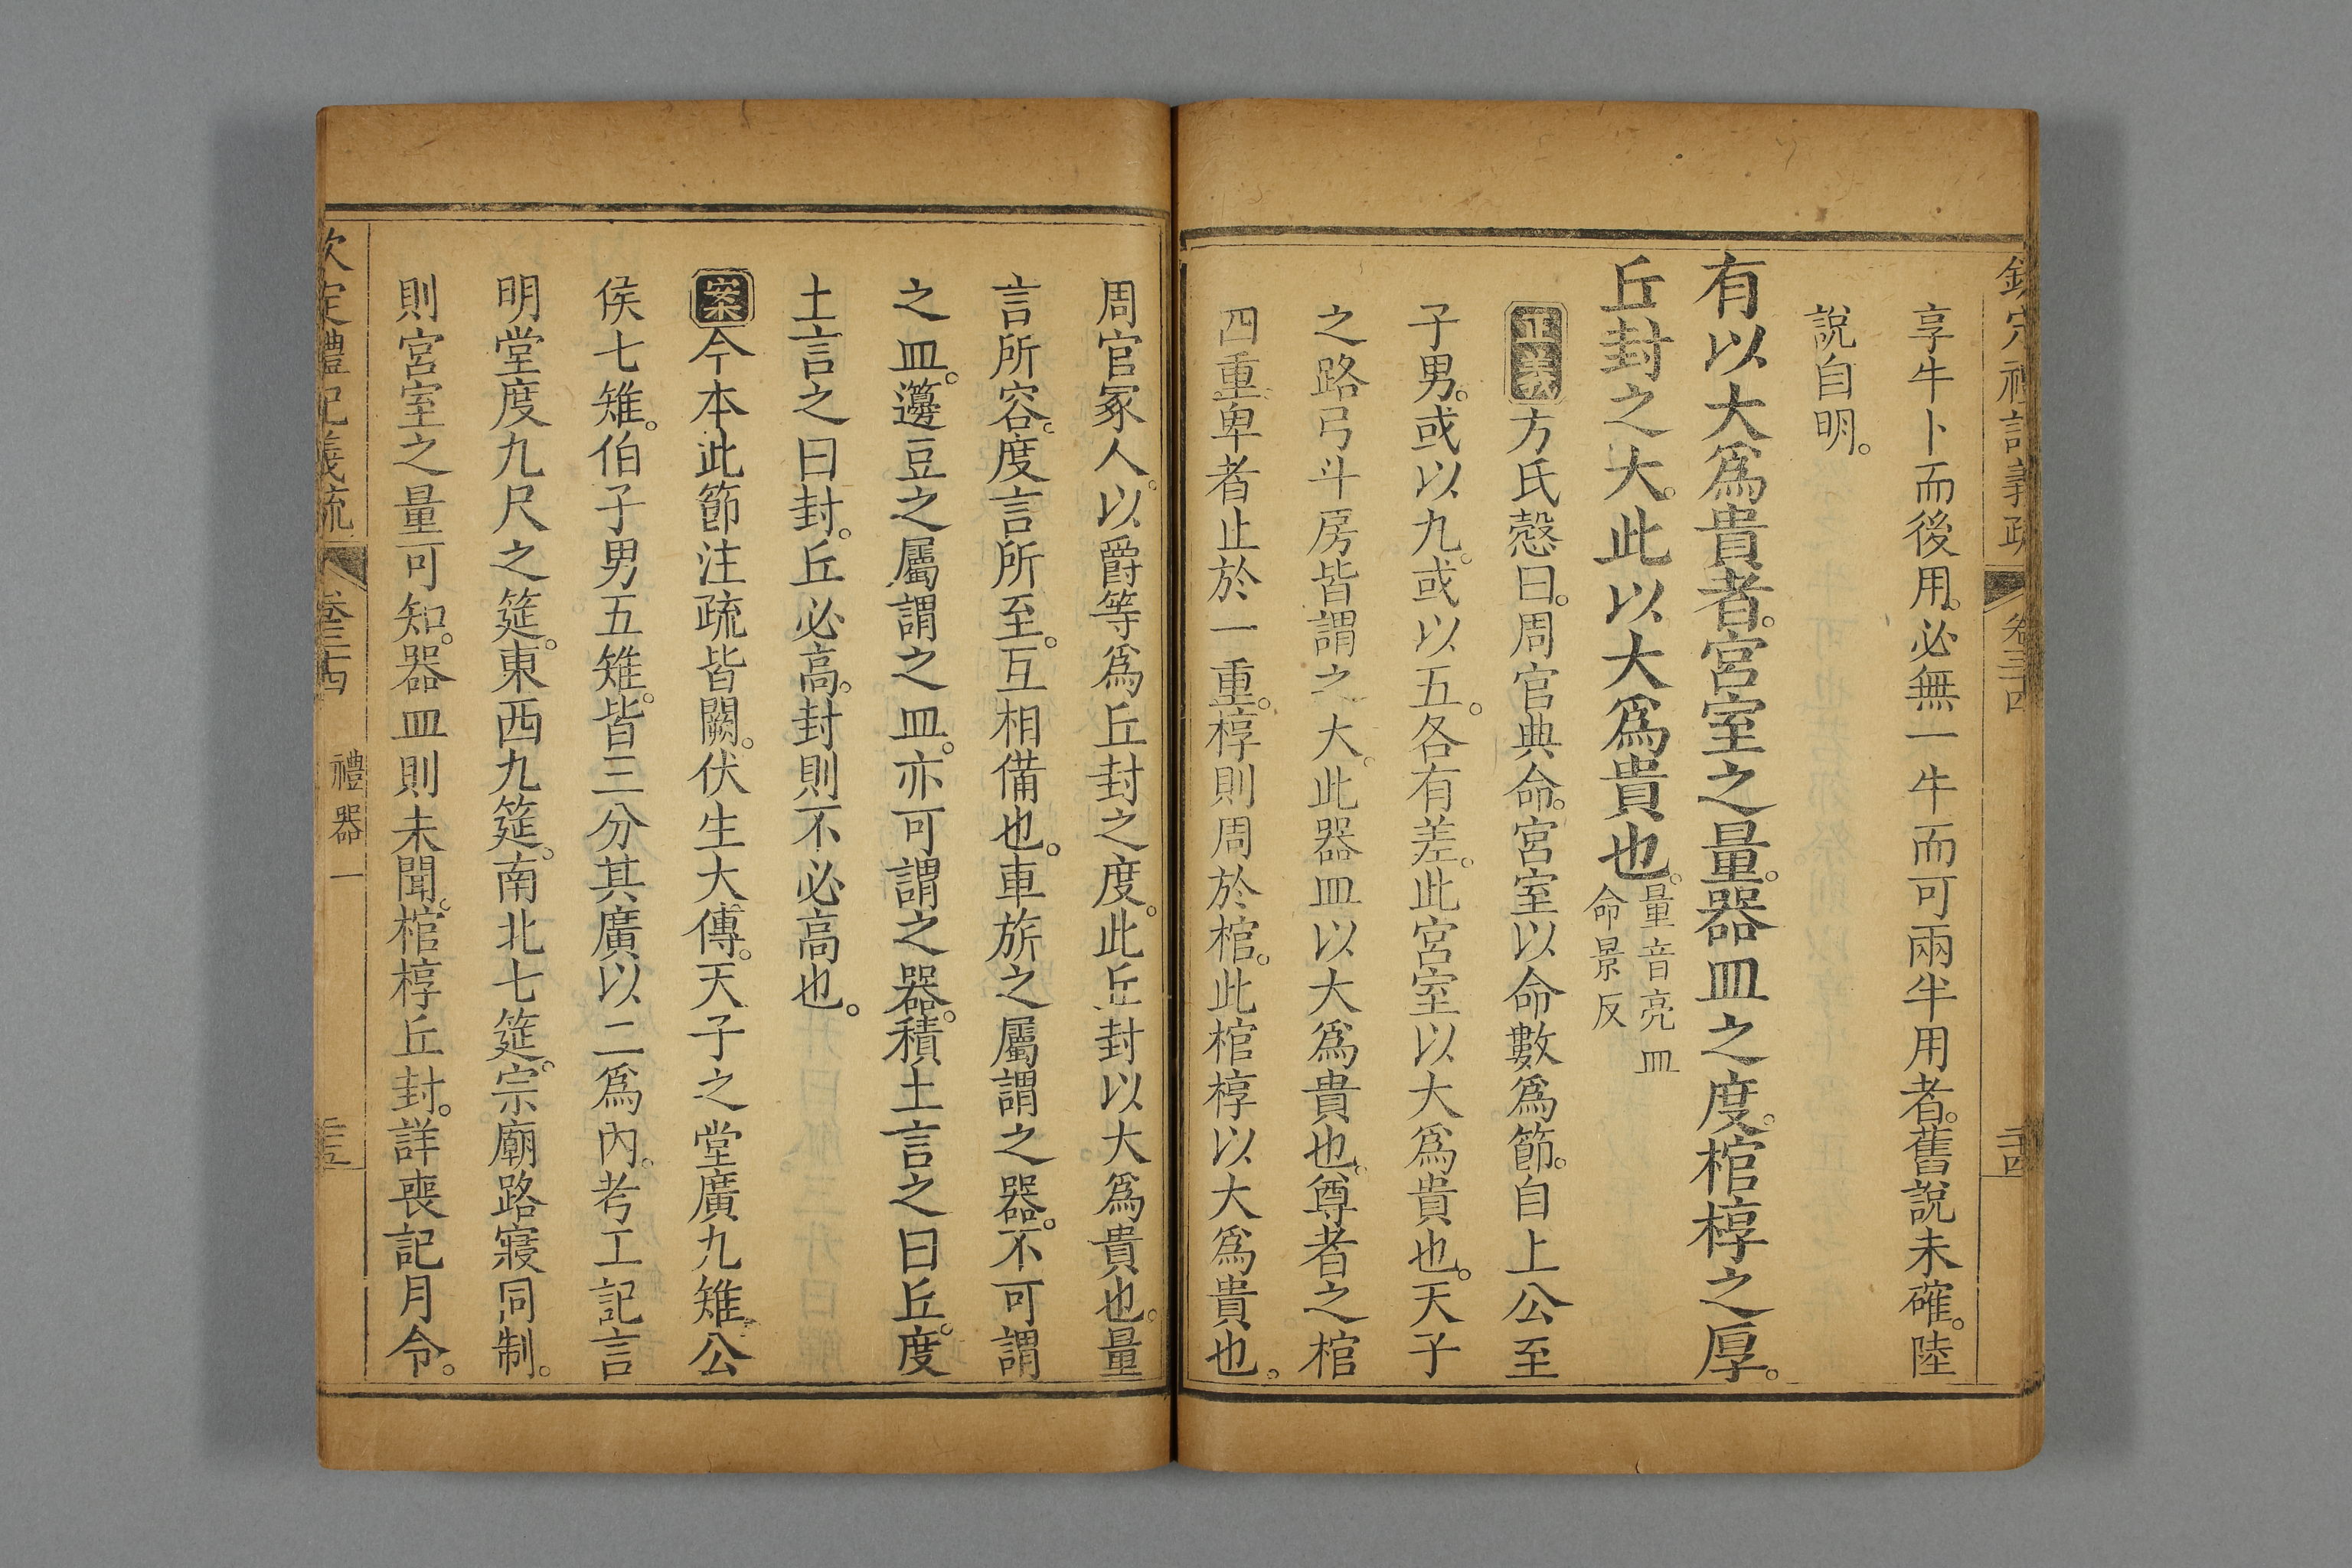 欽定禮記義疏 卷三十四 二十四
享牛卜而後用。必無一牛而可兩半用者。舊說未確。陸
說自明。
有以大爲貴者。宮室之量。器皿之度。棺椁之厚。
丘封之大。此以大爲貴也。量音亮皿命景反
正義方氏慤曰。周官典命。宮室以命數爲節。自上公至
子男。或以九。或以五。各有差。此宮室以大爲貴也。天子
之路弓斗房皆謂之大。此器皿以大爲貴也。尊者之棺
四重卑者止於一重。椁則周於棺。此棺椁以大爲貴也。
周官冢人。以爵等爲丘封之度。此丘封以大爲貴也。量
言所容。度言所至。互相備也。車旂之屬謂之器。不可謂
之皿。籩豆之屬謂之皿。亦可謂之器。積土言之曰丘。度
土言之曰封。丘必高。封則不必高也。
案今本此節注疏皆闕。伏生大傳。天子之堂廣九雉。公
侯七雉。伯子男五雉。皆三分其廣以二爲內。考工記言
明堂度九尺之筵。東西九筵。南北七筵。宗廟路寢同制。
則宮室之量可知。器皿則未聞。棺椁丘封。詳喪記月令。
欽定禮記義疏 卷三十四 禮器一 二十五